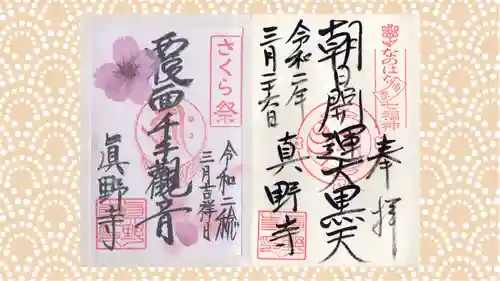 奉拝
朝日開運大黒天
令和二年
三月二十六日
真野寺
なのはな
七福神
さくら祭
令和二稔
三月吉祥日
覆面千手觀音
眞野寺